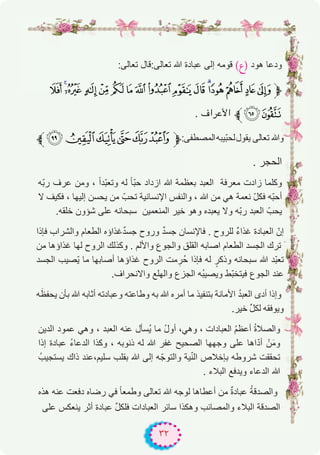 ودعا هود (ع) قومه إلى عبادة الله تعالى:قال تعالى:
﴿ وَإِلَىٰ عَادٍ أَخَاهُمْ هُودًا ۗ قَالَ يَا قَوْمِ اعْبُدُوا اللَّهَ مَا لَكُم مِّنْ إِلَٰهٍ غَيْرُهُ ۚ أَفَلَا
تَتَّقُونَ ﴿٦٥﴾ الأعراف .
والله تعالى يقول لحبّيبه المصطفى:﴿ وَاعْبُدْ رَبَّكَ حَتَّىٰ يَأْتِيَكَ الْيَقِينُ ﴿٩٩﴾ ﴾
الحجر .
وكلما زادت معرفة العبد بعظمة الله ازداد حبّاً له وتعبّداً ، ومن عرف ربّه
أحبّه فكلّ نعمة هي من الله ، والنفس الإنسانية تحبّ من يحسن إليها ، فكيف لا
يحبّ العبد ربّه ولا يعبده وهو خير المنعمين سبحانه على شؤون خلقه.
إنّ العبادة غذاءٌ للروح . فالإنسان جسدٌ وروح جسدٌ غذاؤه الطعام والشراب فإذا
ترك الجسد الطعام اصابه القلق والجوع والألم . وكذلك الروح لها غذاؤها من
تعبّد الله سبحانه وذكرٍ له فإذا حُرمت الروح غذاؤها أصابها ما يُصيب الجسد
عند الجوع فيتخبّط ويصيبُه الجزع والهلع والانحراف.
وإذا أدى العبدُ الأمانة بتنفيذ ما أمره الله به وطاعته وعبادته أثابه الله بأن يحفظه
ويوفقه لكلِّ خير.
والصلاةُ أعظمُ العبادات ، وهي، أولُ ما يُسأل عنه العبد ، وهي عمود الدين
ومَنْ أدّاها على وجهها الصحيح غفر الله له ذنوبه ، وكذا الدعاءُ عبادة إذا
تحققت شروطه بإخلاص النّية والتوجّه إلى الله بقلب سليم،عند ذاك يستجيبُ
الله الدعاء ويدفع البلاء .
والصدقةُ عبادةٌ من أعطاها لوجه الله تعالى وطمعاً في رضاه دفعت عنه هذه
الصدقة البلاء والمصائب وهكذا سائر العبادات فلكلّ عبادة أثر ينعكس على
٣٢